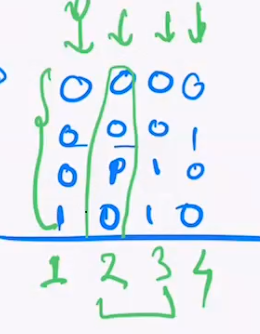 0 0 0 0
0 0 0 1
0 P 1 0
1 0 1 0
1 2 3 4